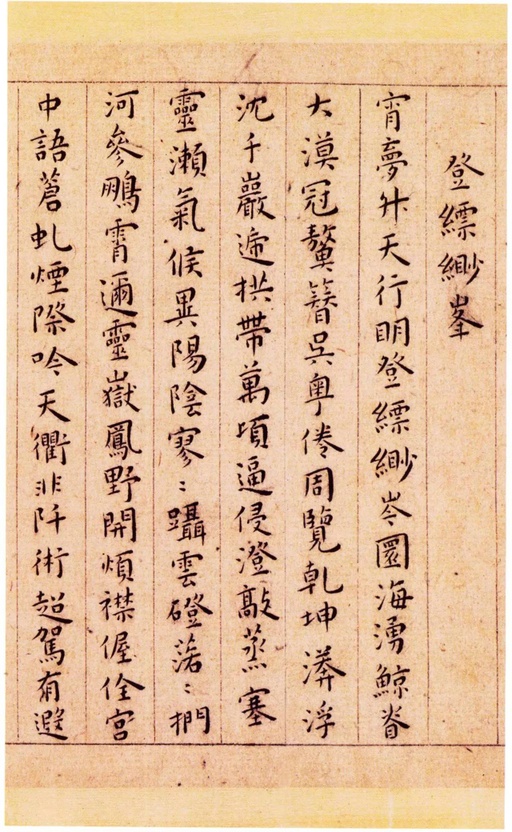 登縹緲峯
宵夢升天行明登縹緲岑圜海湧鯨脊
大漠冠鼇簪吳粵倦周覽乾坤漭浮
沈千巖遞拱帶萬頃逼侵澄敲蒸塞
靈瀨氣候異陽陰寥〻躡雲磴蕩〻捫
河參鵬霄邇靈嶽鳳野開煩襟偓佺宮
中語蒼虬煙際吟天衢非阡術超駕有遐